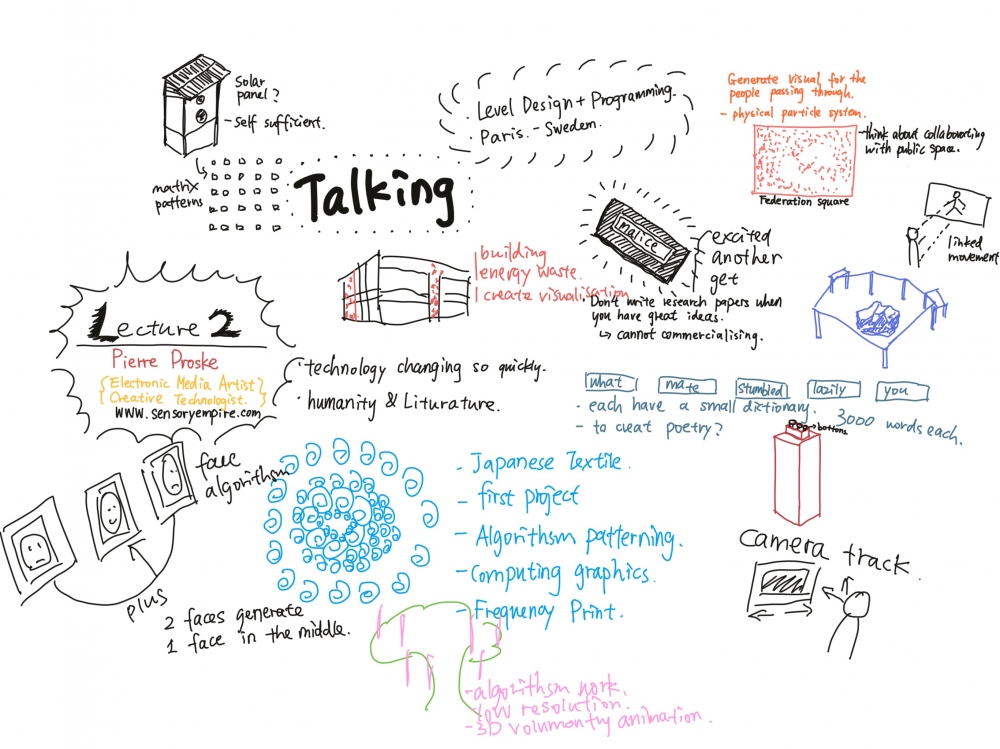 Solar
panel?
- self sufficient.
matrix
patterns
Talking
Level Design + Programming.
Paris. - Sweden.
Generate Visual for the
people passing through.
- physical particle system.
- think about collaborating
with public space.
Federation square
linked
movement
malice
excited
another
get
Don't write research papers when
you have great ideas.
↳ cannot commercialising.
building
energy waste.
create visualisation
Lecture 2
Pierre Proske
{Electronic Media Artist}
{Creative Technologist.
www.sensoryempire.com
· technology changing so quickly.
· humanity & Liturature.
what mate stumbled lazily you
- each have a small dictionary.
3000 words each.
- to creat poetry?
bottons
face
algorithsm
plus
2 faces generate
1 face in the middle.
- Japanese Textile.
- first project
- Algorithsm patterning.
- Computing graphics.
- Frequency Print.
camera track.
- algorithsm work.
- low resolution.
- 3D volumontry animation.